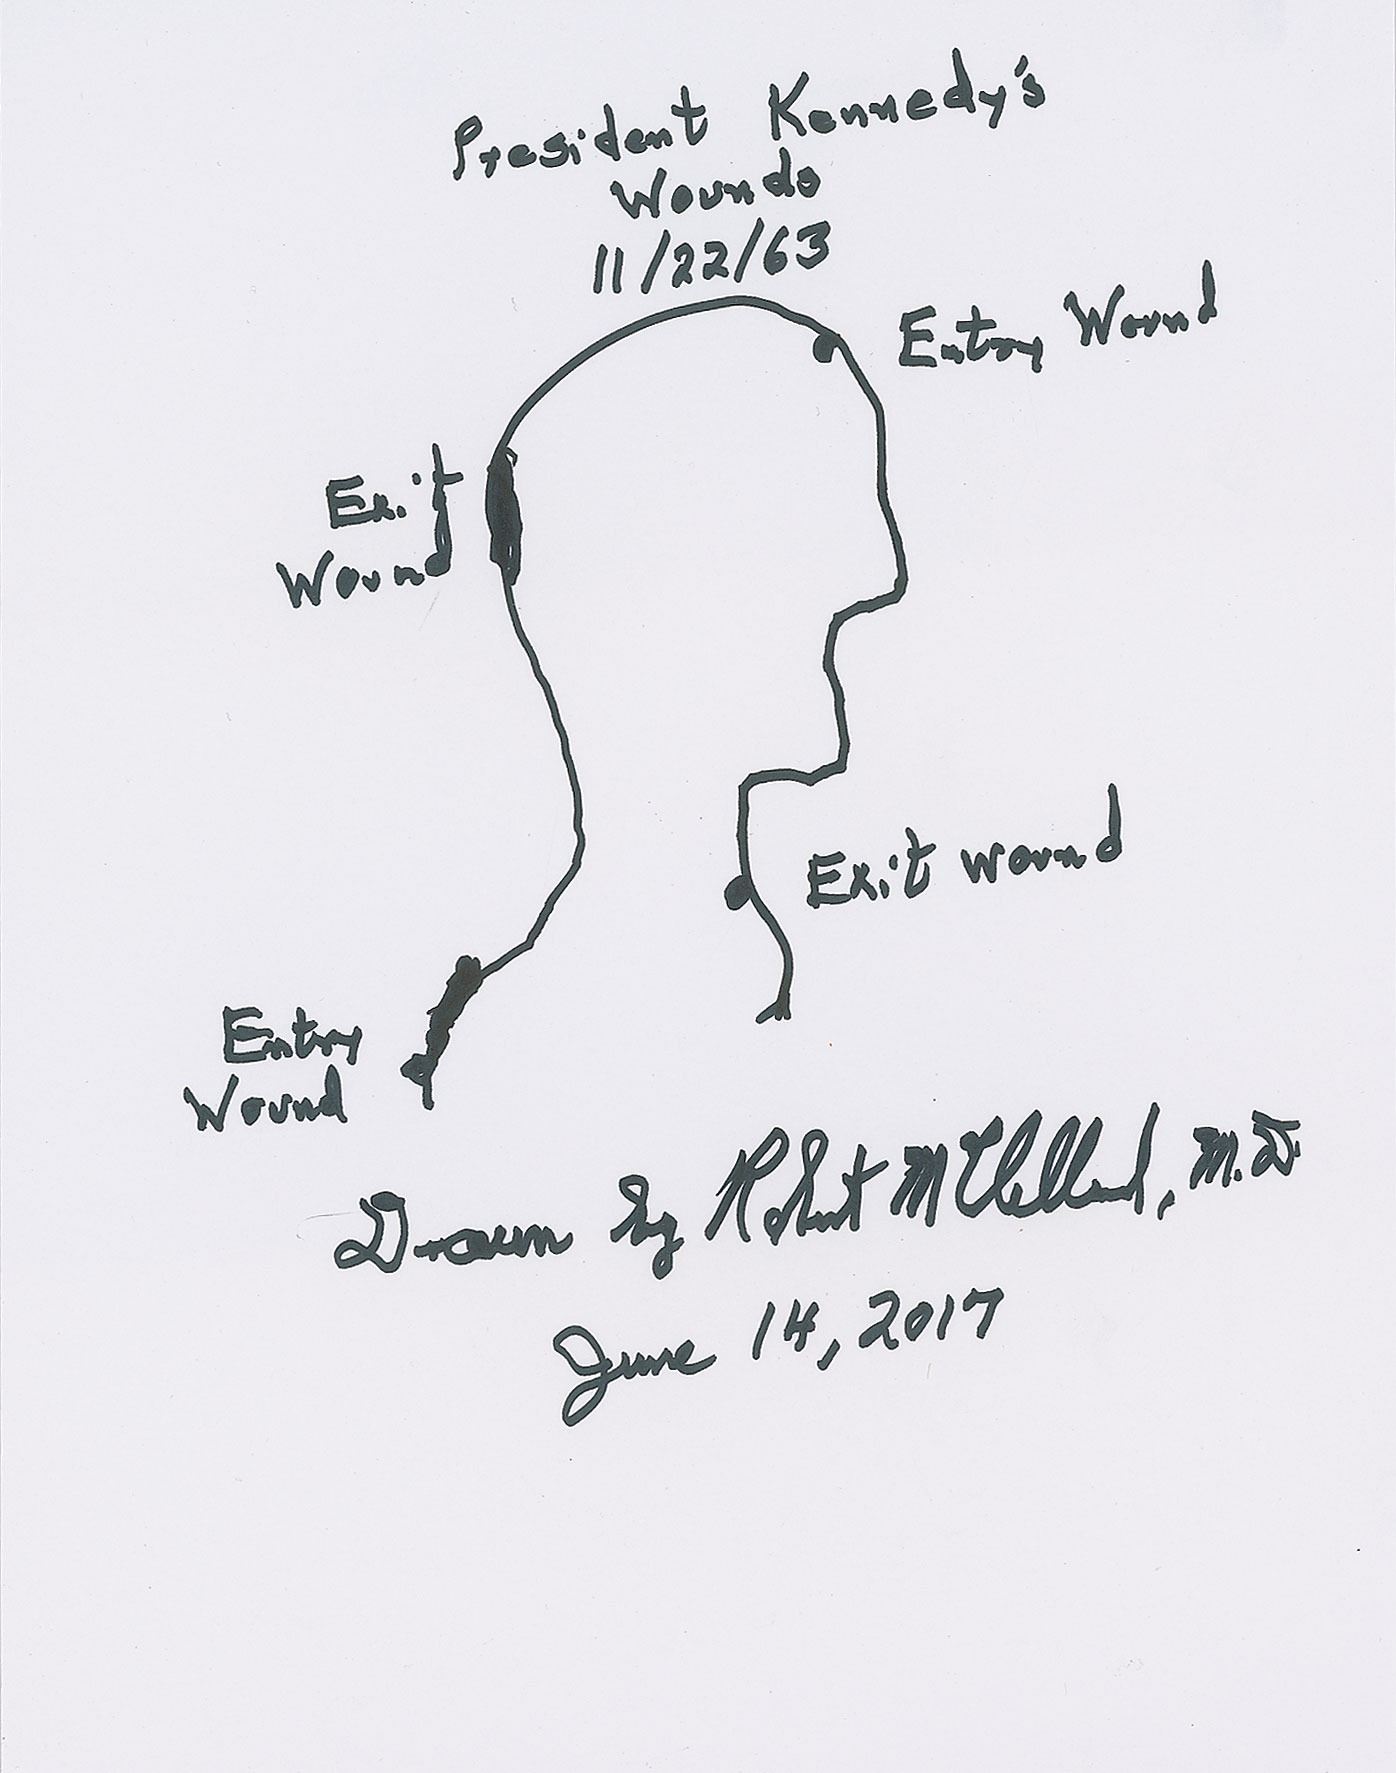 President Kennedy's
Wounds
11/22/63
Entry Wound
Exit
Wound
Exit wound
Entry
Wound
Drawn by Robert McClelland, M.D.
June 14, 2017